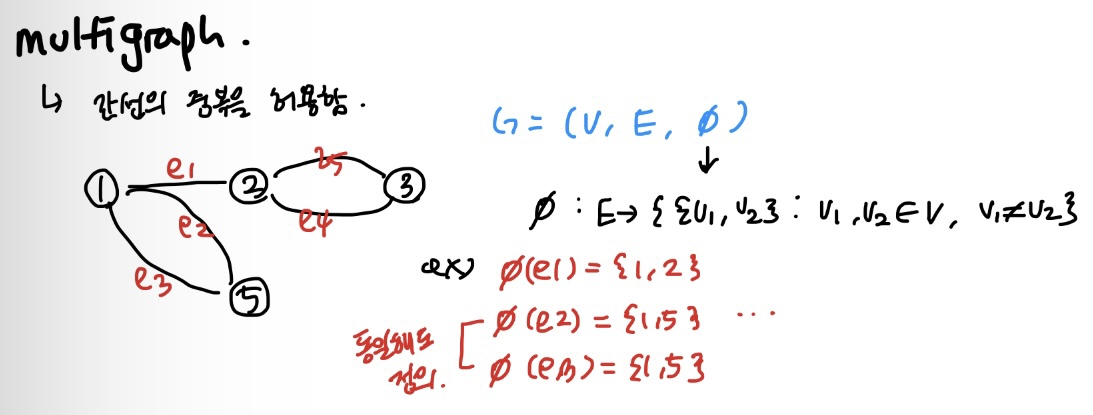 multigraph.
↳ 간선의 중복을 허용함.
G = (V, E, ϕ)
↓
ϕ : E → { {v1, v2} : v1, v2 ∈ V, v1 ≠ v2 }
① e1 ② e5 ③
e2 e4
e3 ⑤
ex) ϕ(e1) = {1, 2}
ϕ(e2) = {1, 5} ...
ϕ(e3) = {1, 5}
동일해도
정의.